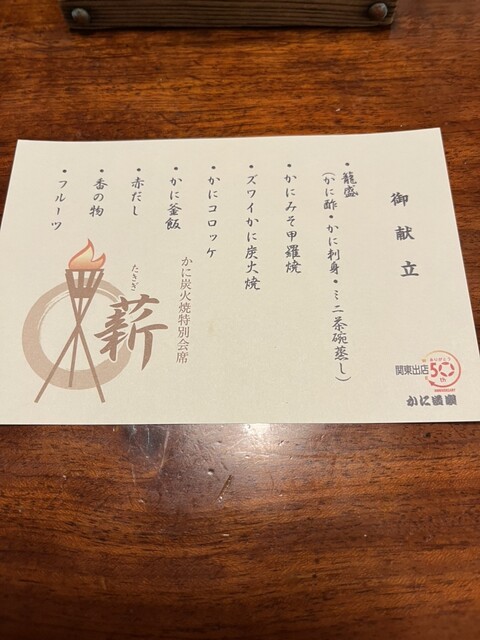 御献立
・籠盛
(かに酢・かに刺身・ミニ茶碗蒸し)
・かにみそ甲羅焼
・ズワイかに炭火焼
・かにコロッケ
・かに釜飯
・赤だし
・香の物
・フルーツ
かに炭火焼特別会席
たきぎ
薪
ありがとう
関東出店50th
ANNIVERSARY
かに道楽